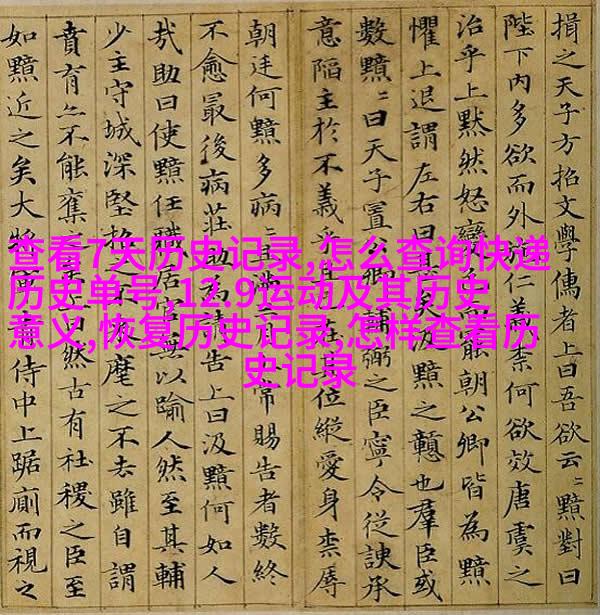 查看7天历史记录,怎么查询快递
历史单号,12.9运动及其历史
意义,恢复历史记录,怎样查看历
史记录
揖之天子方招文學儒者上曰吾欲云〻黯對曰
陛下內多欲而外施仁義柰何欲效唐虞之
治乎上黙然怒變而罷朝公卿皆為黯
懼上退謂左右曰甚矣汲黯之戇也羣臣或
數黯〻曰天子置公卿輔弼之臣寧令從諛承
意陷主於不義乎且在其位縱愛身柰辱
朝廷何黯多病〻且滿三月上常賜告者數終
不愈最後病莊助為請告上曰汲黯何如人
哉助曰使黯任職居官無以踰人然至其輔
少主守城深堅招之不來麾之不去雖自謂
賁育亦不能奪之矣上曰然古有社稷之臣至
如黯近之矣大將軍青侍中上踞廁而視之